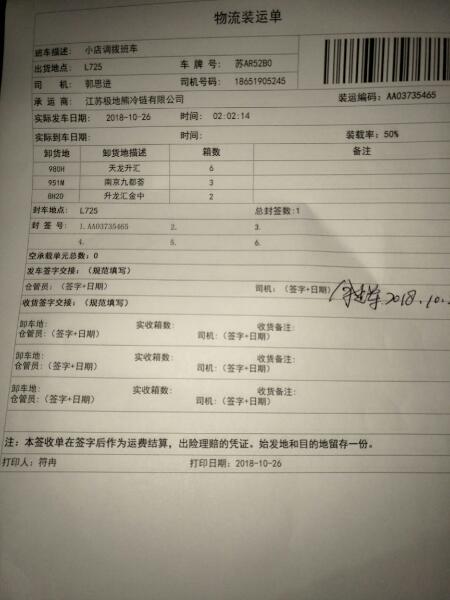 物流装运单
班车描述: 小店调拨班车
出货地点: L725 车 牌 号: 苏AR52B0
司 机: 郭思进 司机号码: 18651905245
承 运 商: 江苏极地熊冷链有限公司 装运编码: AA03735465
实际发车日期: 2018-10-26 时间: 02:02:14
实际到车日期: 时间: 装载率: 50%
卸货地 卸货地描述 箱数 备注
980H 天龙升汇 6
951M 南京九都荟 3
8H20 升龙汇金中 2
封车地点: L725 总封签数:1
封 签 号: 1.AA03735465 2. 3.
4. 5. 6.
空承载单元总数: 0
发车签字交接: (规范填写)
仓管员: (签字+日期) 司机: (签字+日期) 2018.10.
收货签字交接: (规范填写)
卸车地: 实收箱数: 收货备注:
仓管员: (签字+日期) 司机: (签字+日期)
卸车地: 实收箱数: 收货备注:
仓管员: (签字+日期) 司机: (签字+日期)
卸车地: 实收箱数: 收货备注:
仓管员: (签字+日期) 司机: (签字+日期)
注: 本签收单在签字后作为运费结算, 出险理赔的凭证。始发地和目的地留存一份。
打印人: 符冉 打印日期: 2018-10-26